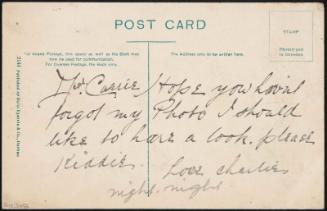 POST CARD
STAMP
For Inland Postage, this space as well as the Back may
now be used for communication.
For Foreign Postage, the Back only.
The Address only to be written here.
Carrie Hope you hav'nt
forgot my Photo I should
like to have a look please
Kiddie. Love Charlie
night-night